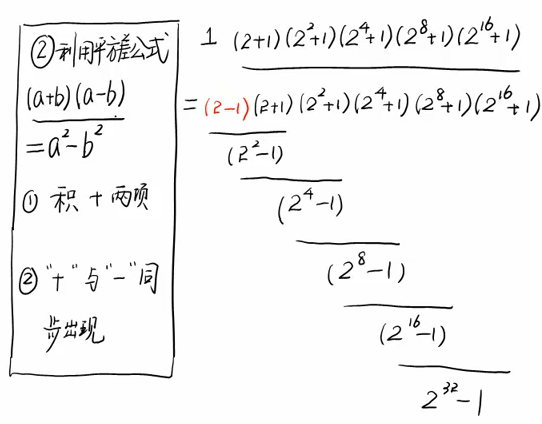 ②利用平方差公式
(a+b)(a-b)
=a²-b²
① 积 + 两项
② "+"与"-"同
步出现
1 (2+1)(2²+1)(2⁴+1)(2⁸+1)(2¹⁶+1)
=(2-1)(2+1)(2²+1)(2⁴+1)(2⁸+1)(2¹⁶+1)
(2²-1)
(2⁴-1)
(2⁸-1)
(2¹⁶-1)
2³²-1